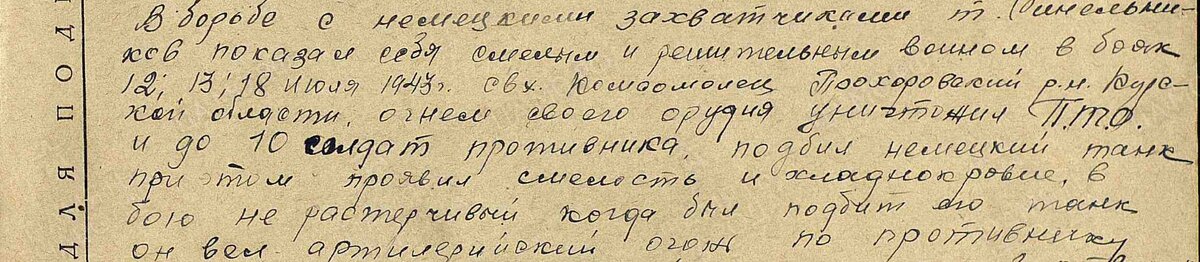 В борьбе с немецкими захватчиками т. Синельни-
ков показал себя смелым и решительным воином в боях
12; 13; 18 Июля 1943г. свх. Комсомолец Прохоровский р.н. Курс-
кой области, огнем своего орудия уничтожил П.Т.О.
и до 10 солдат противника, подбил немецкий танк
при этом проявил смелость и хладнокровие, в
бою не растерчивый когда был подбит его танк
он вел артилерийский огонь по противнику
ДЛЯ ПОД